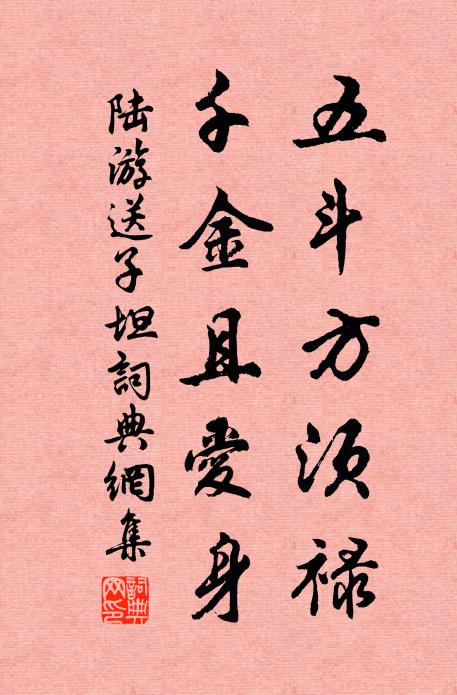 五斗方須禄
千金且愛身
陆游送子坦詞典網集
詞典
网印